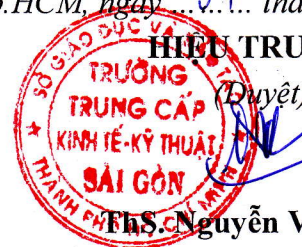 .HCM, ngày ...
HIỆU TRU
(Duyệt)
SỞ GIÁO DỤC VÀ
TRƯỜNG
TRUNG CẤP
KINH TẾ-KỸ THUẬT
SÀI GÒN
THÀNH PHỐ
MINH
ThS. Nguyễn V